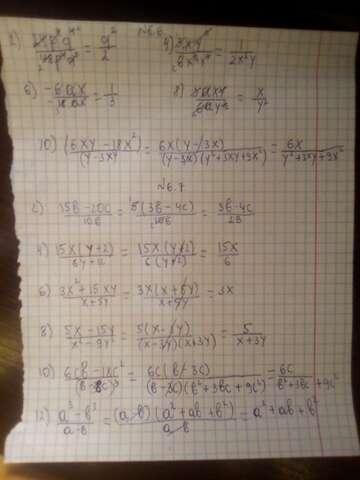 №6.6
4) 3xy/6x³y² = 1/2x²y
6) -6ax/-18ax = 1/3
8) = x/y²
10) (6xy-18x²)/(y-3xy = 6x(y-3x)/(y-3x)(y²+3xy+9x²) = 6x/y²+3xy+9x²
№6.7
2) 15b-20c/10b = 5(3b-4c)/10b = 3b-4c/2b
4) 15x(y+2)/6y+12 = 15x(y+2)/6(y+2) = 15x/6
6) 3x²+15xy/x+5y = 3x(x+5y)/x+5y = 3x
8) 5x-15y/x²-9y² = 5(x-3y)/(x-3y)(x+3y) = 5/x+3y
10) 6cb-18c²/(b-3c)³ = 6c(b-3c)/(b-3c)(b²+3bc+9c²) = 6c/b²+3bc+9c²
12) a³-b³/a-b = (a-b)(a²+ab+b²)/a-b = a²+ab+b²